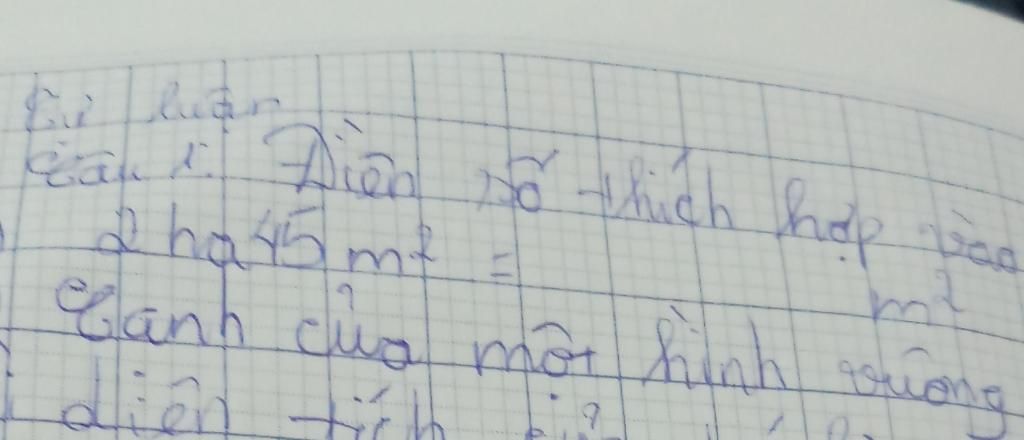 Tự luận
Câu 1: Điền số thích hợp vào
2 ha 45 m² = m²
Cạnh của một hình vuông
diện tích